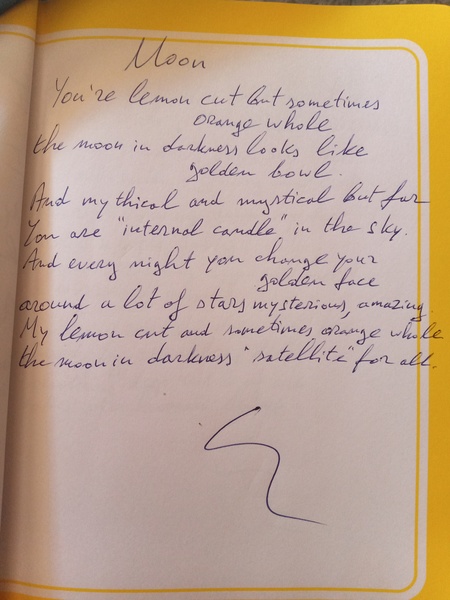 Moon
You're lemon cut but sometimes
orange whole
the moon in darkness looks like
golden bowl.
And mythical and mystical but far
You are "internal candle" in the sky.
And every night you change your
golden face
around a lot of stars mysterious, amazing
My lemon cut and sometimes orange whole
the moon in darkness "satellite" for all.